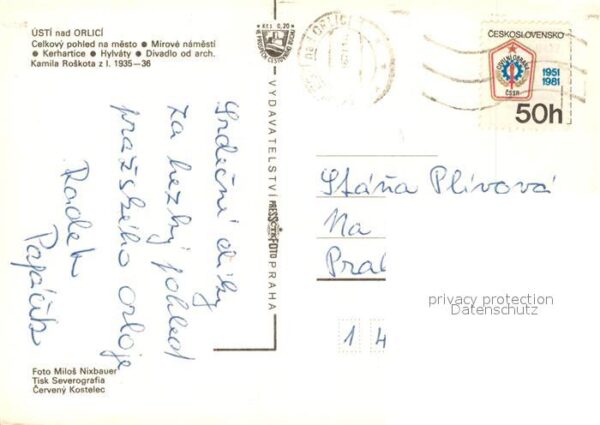 ÚSTÍ nad ORLICÍ
Celkový pohled na město • Mírové náměstí
• Kerhartice • Hylváty • Divadlo od arch.
Kamila Roškota z l. 1935—36
Kčs 0,20
VYDAVATELSTVÍ PRESSFOTO PRAHA
Srdečné díky
za hezký pohled
pražského orloje
Radek
Papáček
ORLICÍ
ČESKOSLOVENSKO
CIVILNÍ OBRANA
ČSSR
1951
1981
50h
Stáňa Plívová
Na
Pra
privacy protection
Datenschutz
1 4
Foto Miloš Nixbauer
Tisk Severografia
Červený Kostelec